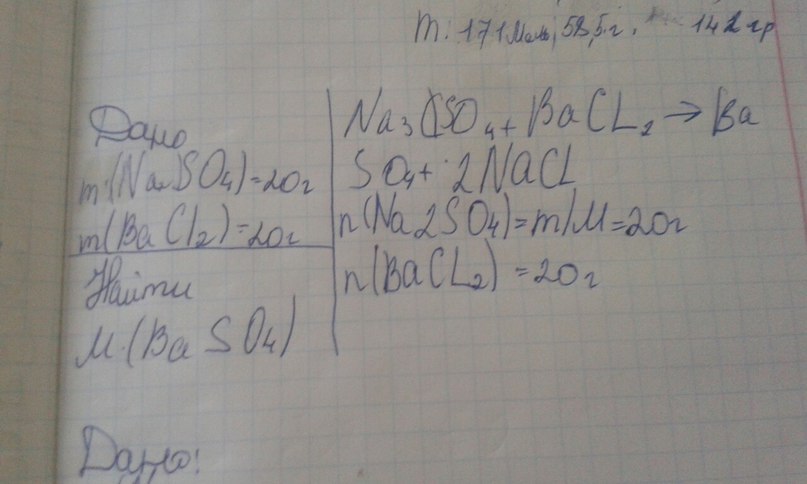 m: 171 Моль, 58,5 г. 142 гр
Дано
m:(Na2SO4)=20г
m(BaCl2)=20г
Найти
M.(BaSO4)
Na3SO4+BaCL2→Ba
SO4+2NaCL
n(Na2SO4)=m/M=20г
n(BaCL2)=20г
Дано: